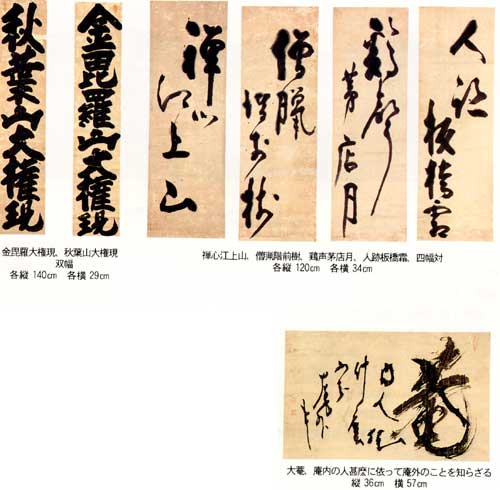 人跡板橋霜
鶏声茅店月
僧臘階前樹
禅心江上山
金毘羅山大権現
秋葉山大権現
金毘羅大権現、秋葉山大権現
双幅
各縦 140㎝ 各横 29㎝
禅心江上山、僧臈階前樹、鶏声茅店月、人跡板橋霜、四幅対
各縦 120㎝ 各横 34㎝
菴
大菴、庵内の人甚麼に依って庵外のことを知らざる
縦 36㎝ 横 57㎝